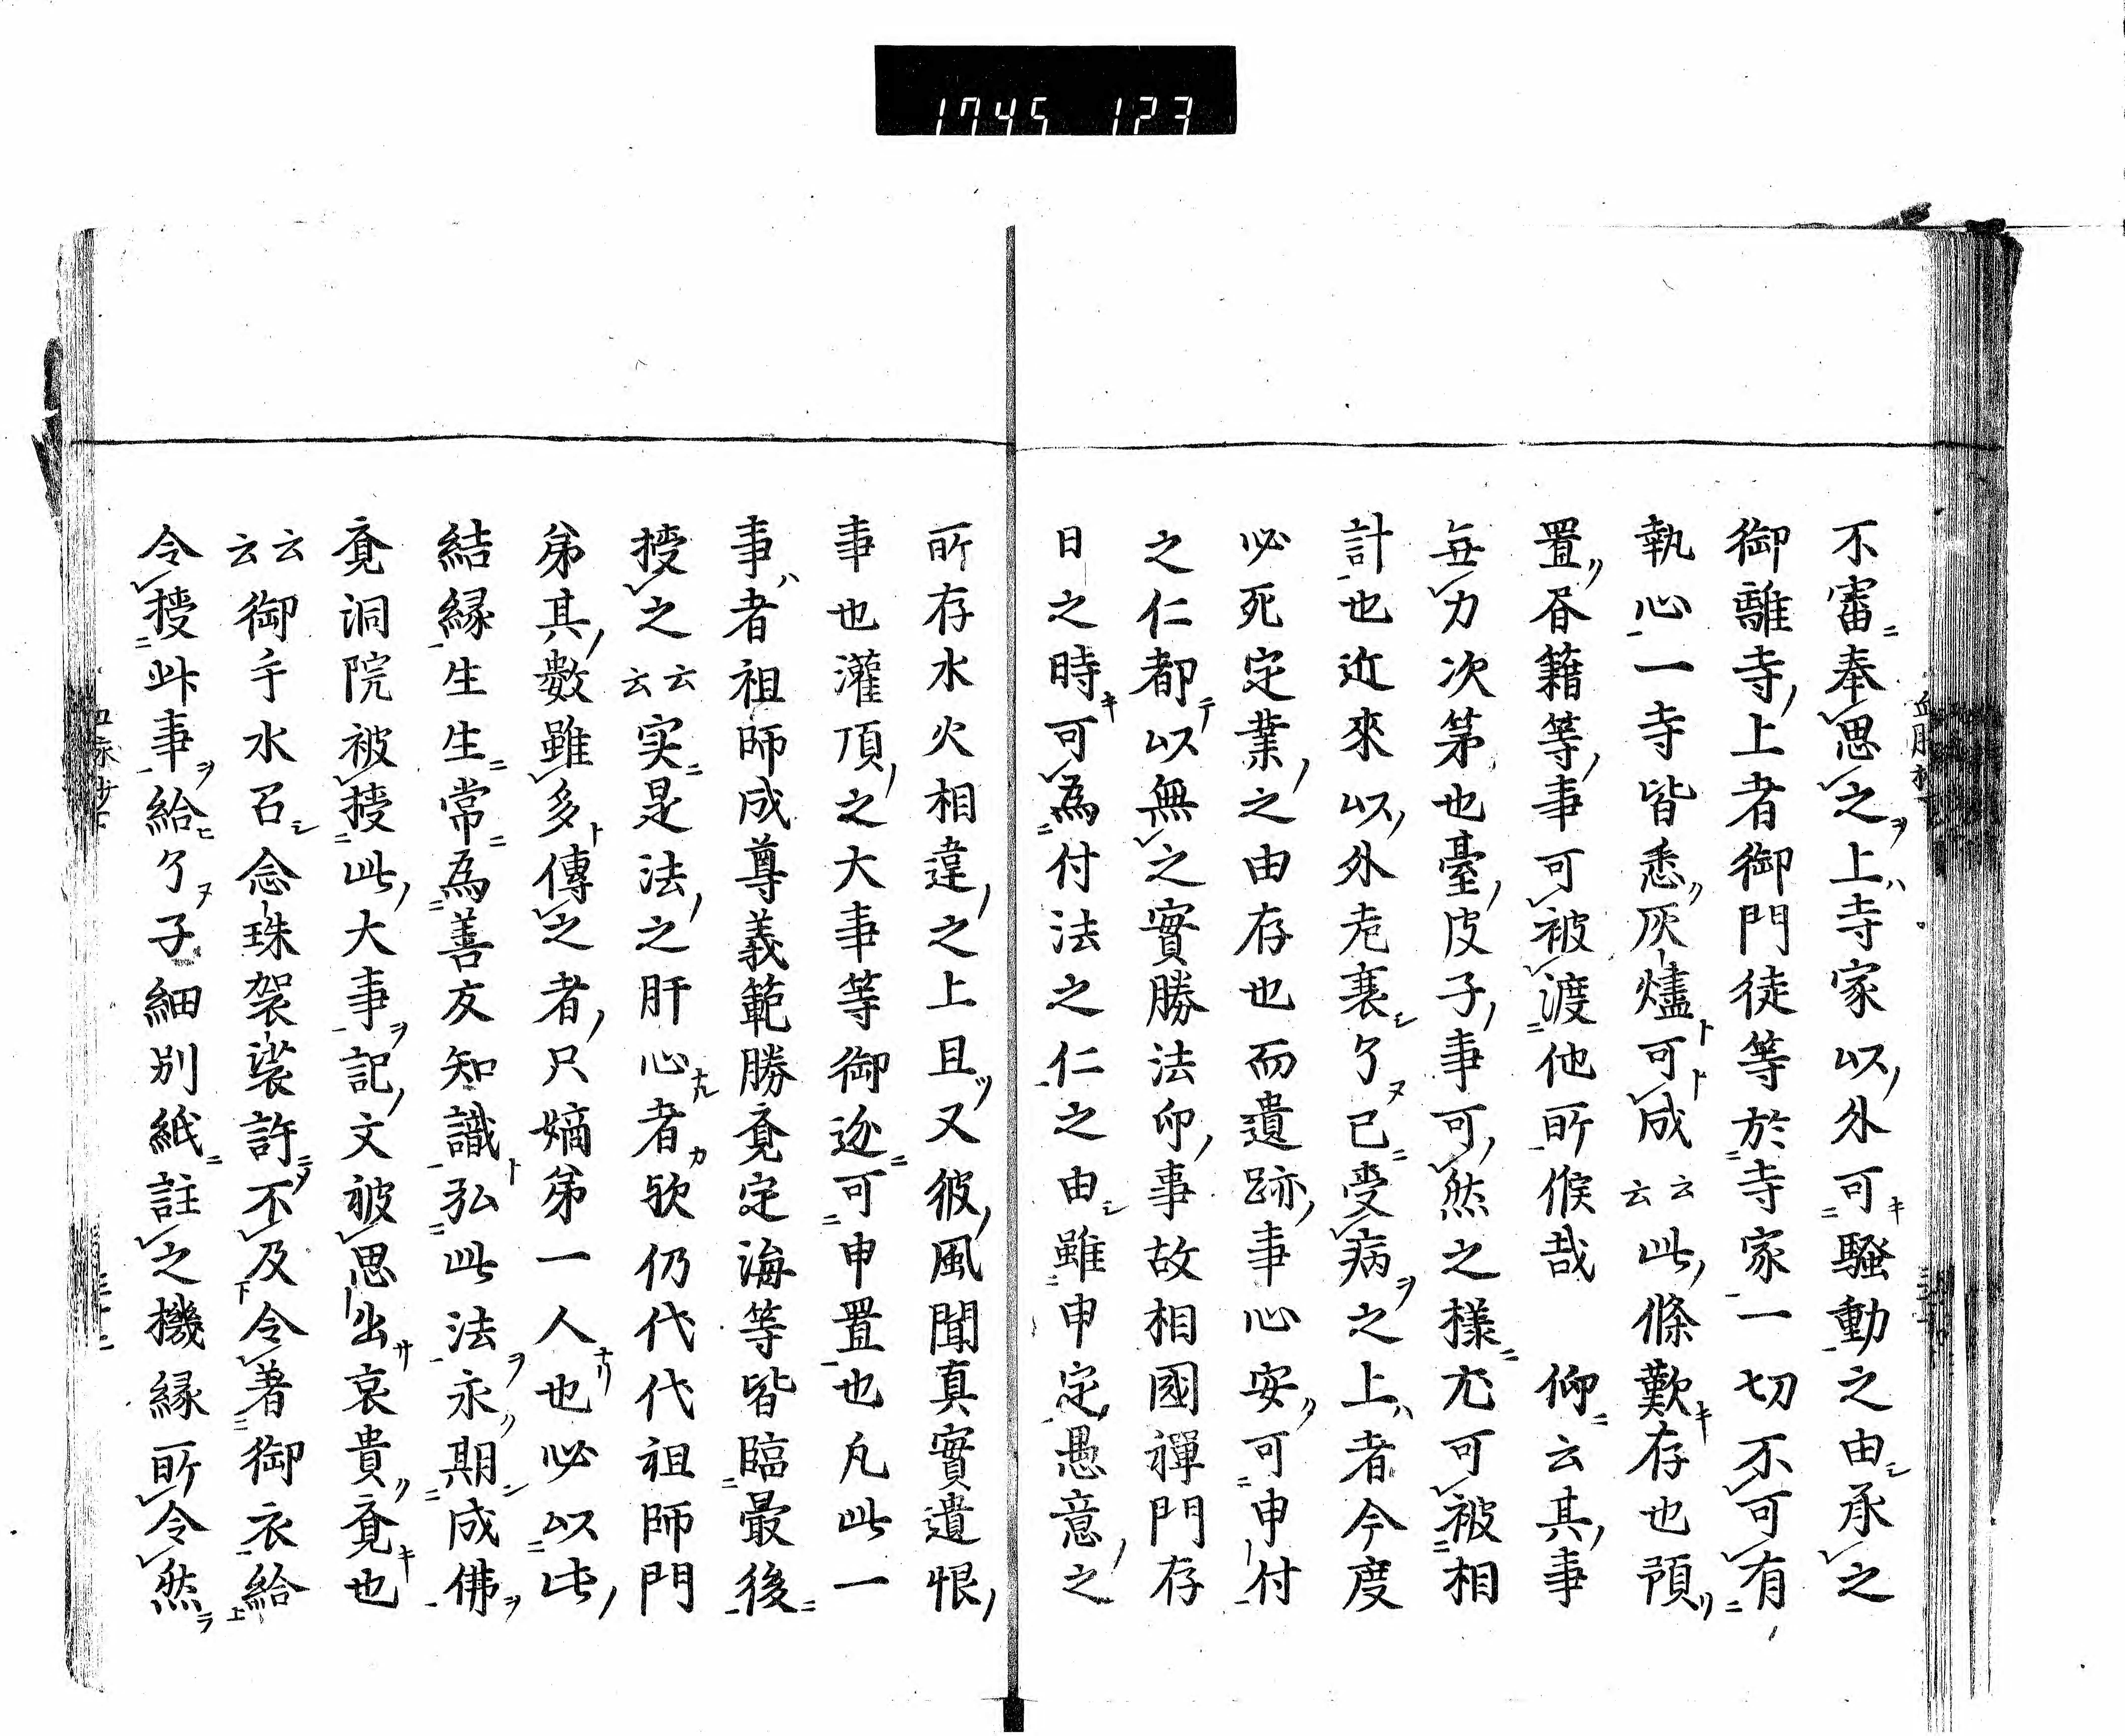 1745 123
不審奉思之上寺家以外可騒動之由承之
御離寺上者御門徒等於寺家一切不可有
執心一寺皆悉灰燼可成云云此條歎存也預
置呑籍等事可被渡他所候哉 仰云其事
無力次第也臺皮子事可然之様尤可被相
計也近來以外老衰了已受病之上者今度
必死定業之由存也而遺跡事心安可申付
之仁都以無之實勝法印事故相國禪門存
日之時可為付法之仁之由雖申定愚意之
所存水火相違之上且又彼風聞真實遺恨
事也灌頂之大事等御迯可申置也凡此一
事者祖師成尊義範勝覚定海等皆臨最後
授之云云実是法之肝心者歟仍代代祖師門
弟其數雖多傳之者只嫡弟一人也必以此
結縁生生常為善友知識弘此法永期成佛
覚洞院被授此大事記文被思出哀貴覚也
云云御手水召念珠袈裟許不及令著御衣給
令授此事給了子細別紙註之機縁所令然